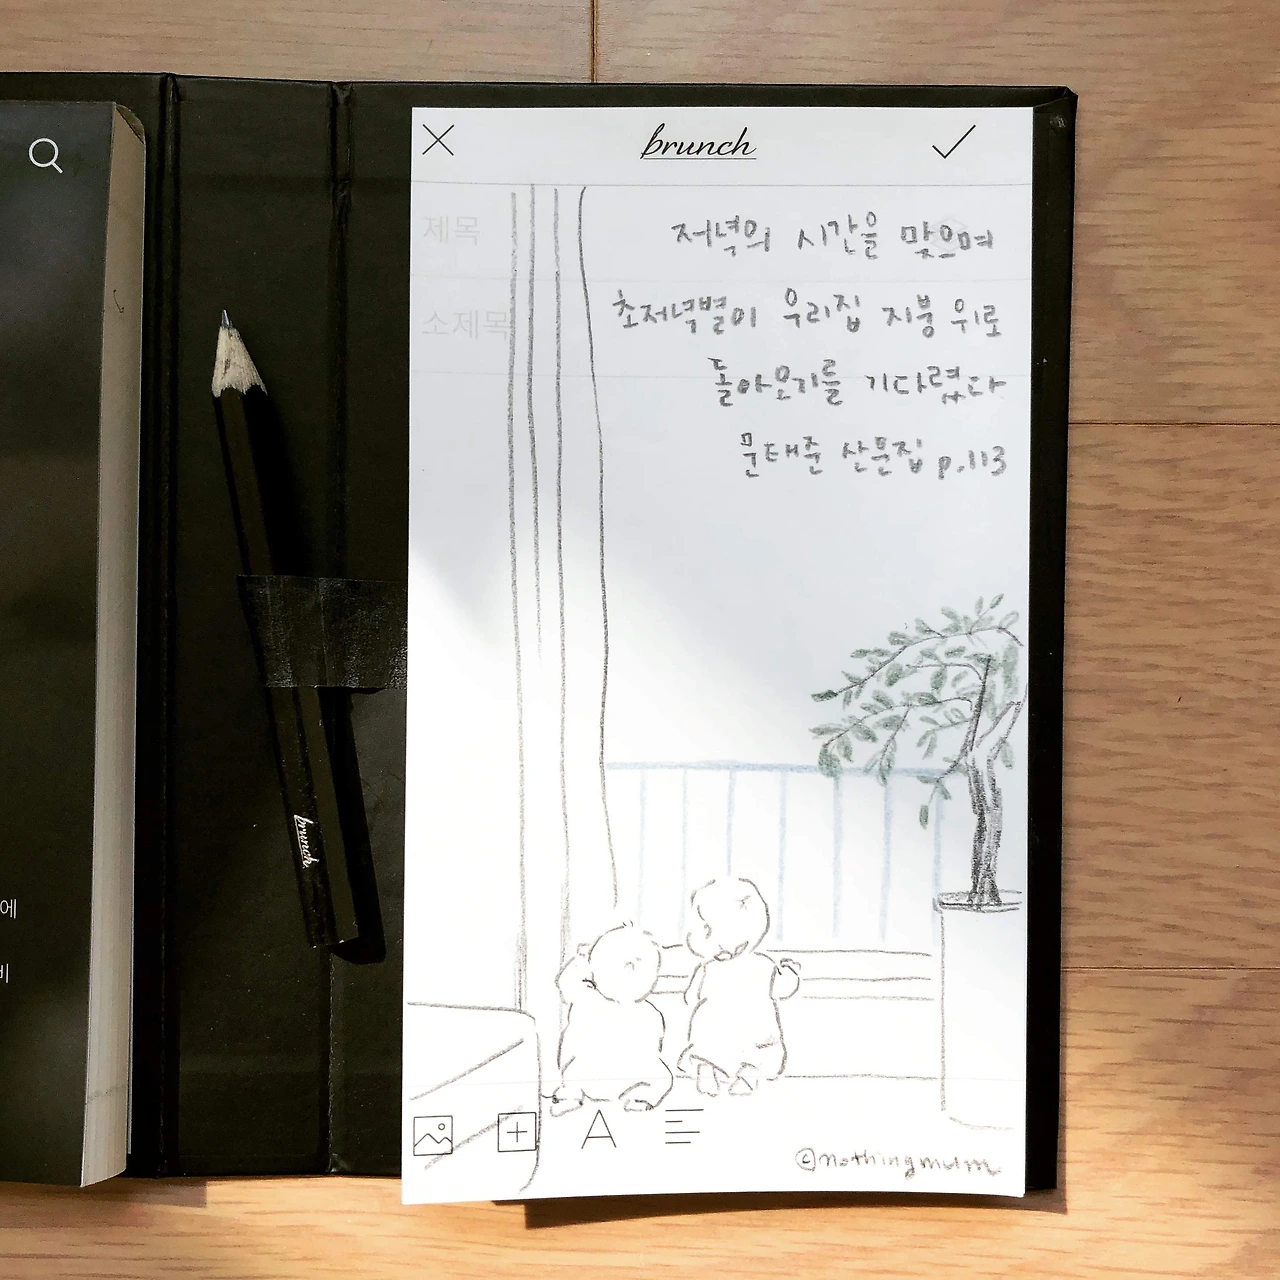 brunch
제목
저녁의 시간을 맞으며
소제목
초저녁별이 우리집 지붕 위로
돌아오기를 기다렸다
문태준 산문집 p.113
brunch
에
비
A
©nothingmum